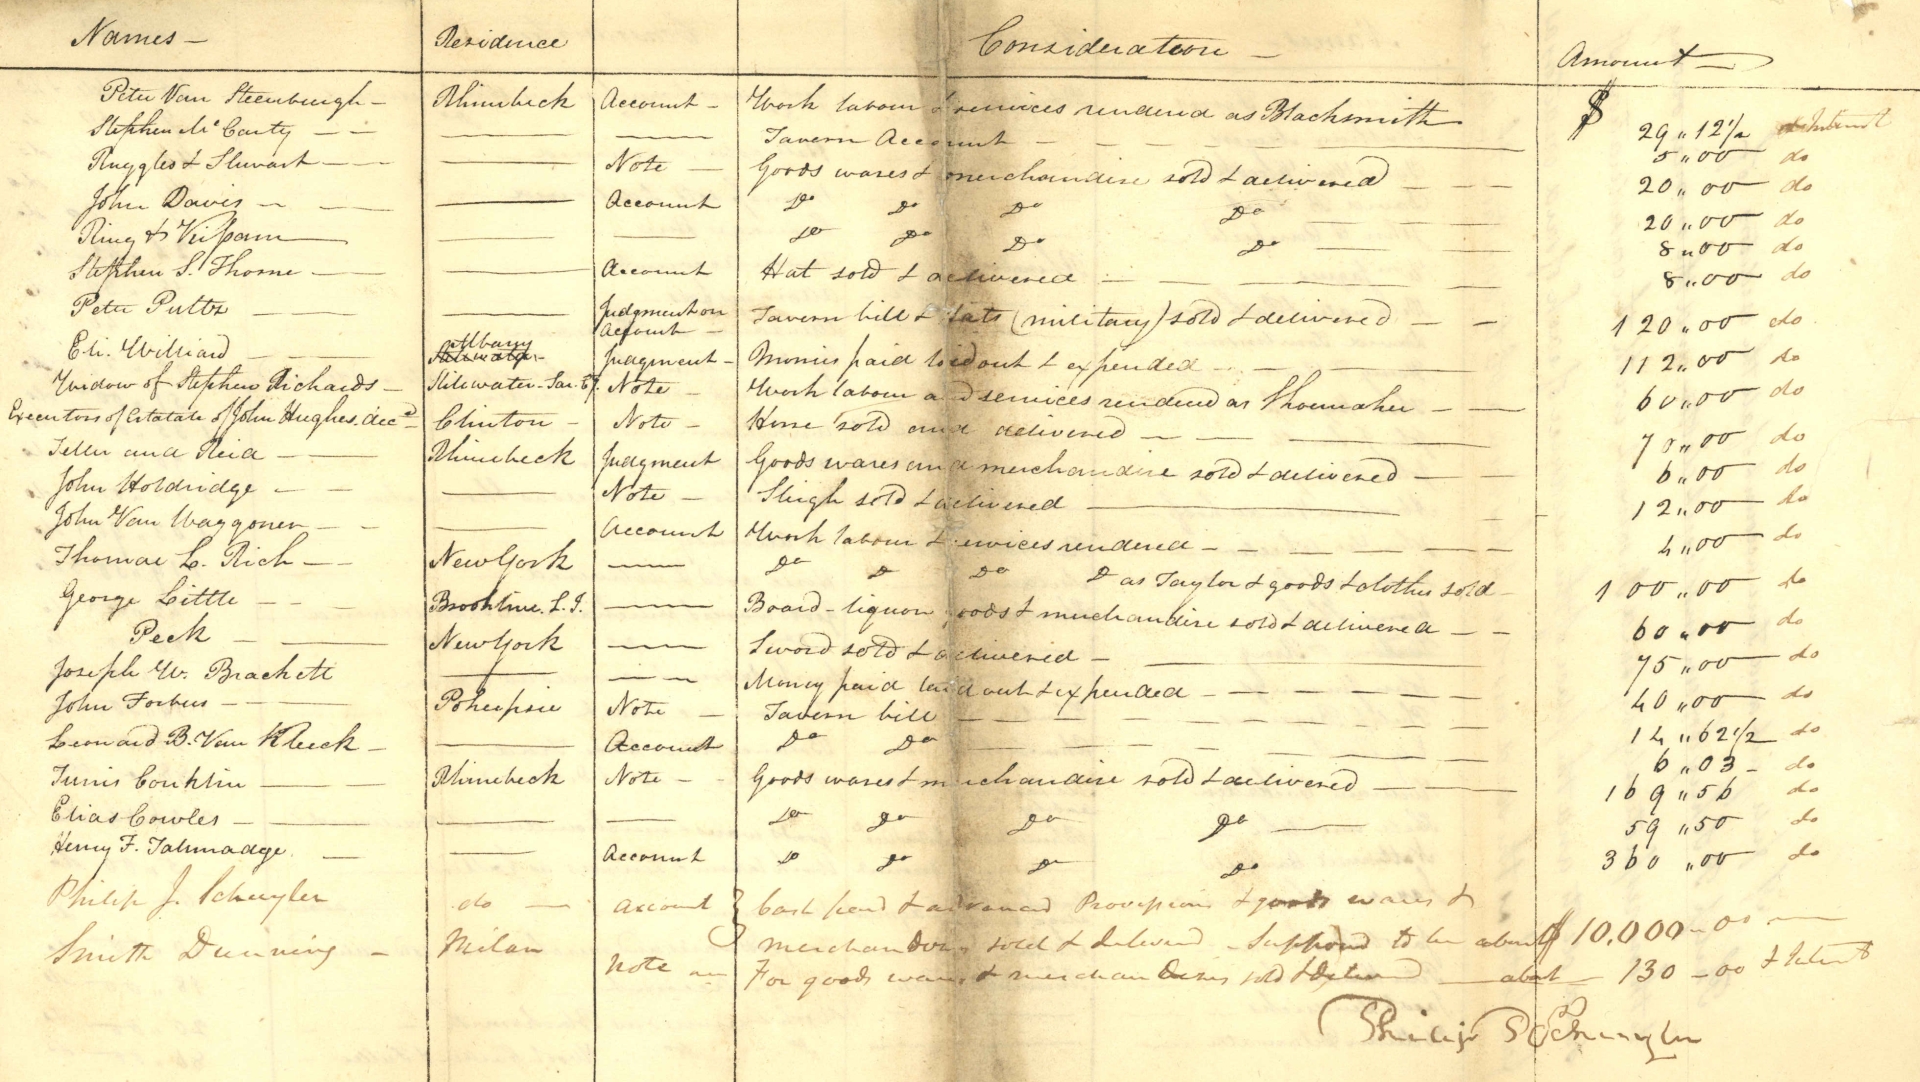 Names — Residence Consideration — Amount —
Peter Van Steenburgh — Rhinebeck Account — Work labour & services rendered as Blacksmith $ 29 „ 12 1/2 & Interest
Stephen Mc Carty — — — — Tavern Account — 5 „ 00 do
Ruggles & Stewart — — — Note — Goods wares & merchandise sold & delivered — 20 „ 00 do
John Davis — — — Account Do Do Do Do — 20 „ 00 do
Ring & Kissam — — — Do Do Do Do — 8 „ 00 do
Stephen S. Thorne — — — Account Hat sold & delivered — 8 „ 00 do
Peter Pultz — — Judgment on Account — Tavern bill & hats (military) sold & delivered — 120 „ 00 do
Eli Williard — Albany Judgment — Monies paid laid out & expended — 112 „ 00 do
Widow of Stephen Richards — Stillwater — Sar. Cy. Note — Work labour and services rendered as Shoemaker — 60 „ 00 do
Executors of Estatate of John Hughes. decd — Clinton — Note — Horse sold and delivered — 70 „ 00 do
Teller and Reid — Rhinebeck Judgment Goods wares and merchandise sold & delivered — 6 „ 00 do
John Holdridge — — Note — Sleigh sold & delivered — 12 „ 00 do
John Van Waggoner — — Account Work labour & services rendered — 4 „ 00 do
Thomas L. Rich — New York — Do Do Do D as Taylor & goods & clothes sold — 100 „ 00 do
George Little — Brookline. L. I. — Board — liquor goods & merchandise sold & delivered — 60 „ 00 do
Peck — New York — Sword sold & delivered — 75 „ 00 do
Joseph W. Brackett — — Money paid laid out & expended — 40 „ 00 do
John Forbus — Pokeepsie Note — Tavern bill — 14 „ 62 1/2 do
Leonard B. Van Kleeck — — Account Do Do — 6 „ 03 — do
Tunis Conklin — Rhinebeck Note — Goods wares & merchandise sold & delivered — 169 „ 56 do
Elias Cowles — — — Do Do Do Do — 59 „ 50 do
Henry F. Talmadge — — Account Do Do Do Do 360 „ 00 do
Philip J. Schuyler do — Account Cash lend & advanced Provisions & goods wares &
merchandize sold & delivered — Supposed to be about $ 10,000 — 00 —
Smith Dunning — Milan Note — For goods wares & merchandises sold & delivered — about — 130 — 00 & Interest
Philip P Schuyler